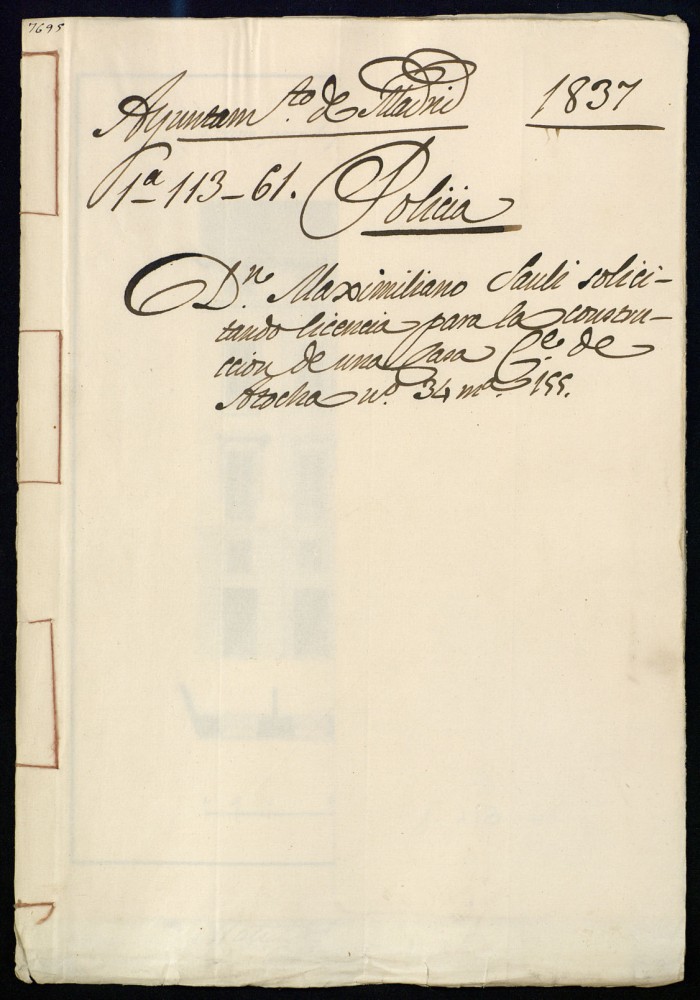 7695
Ayuntam.to de Madrid 1837
1a-113-61. Policia
Dn Maximiliano Sauli solici-
tando licencia para la constru-
ccion de una Casa Ce. de
Atocha no. 34 ma. 155.